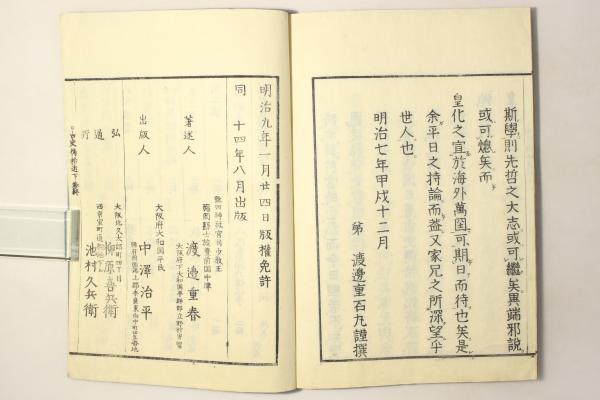 斯學則先哲之大志或可繼矣異端邪說
或可熄矣而
皇化之宣於海外萬國可期日而待也矣是
余平日之持論而蓋又家兄之所深望乎
世人也
明治七年甲戌十二月
弟 渡邊重石丸謹撰
明治九年一月廿四日版權免許
同 十四年八月出版
著述人
渡邊重春
大阪府大和國平民
出版人
中澤治平
弘通
大阪北久太郎町四丁目
柳原喜兵衛
池村久兵衛